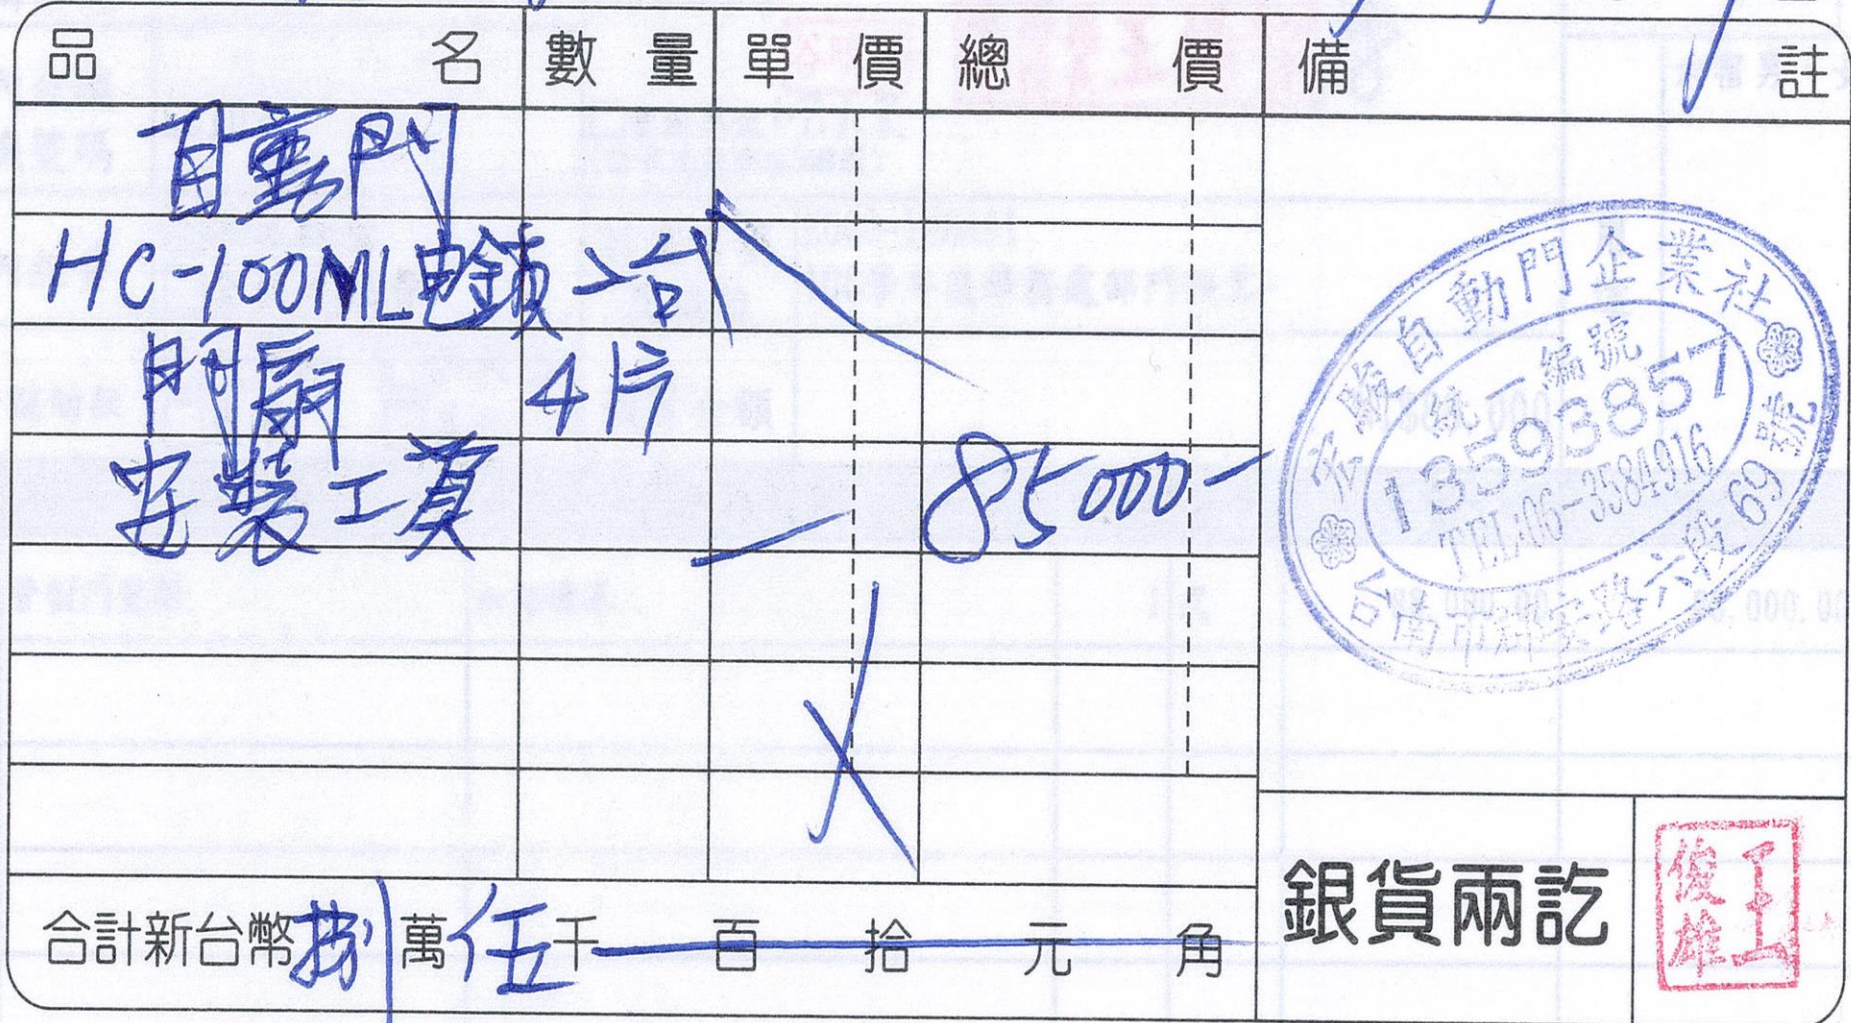 品名 數量 單價 總價 備註
自動門
HC-100ML電鎖 一台
門扇 4片
安裝工資 85000-
自動門企業社
統一編號
13593857
TEL:06-3584916
台南市 路六段69號
合計新台幣捌萬伍千百拾元角
銀貨兩訖
王俊雄